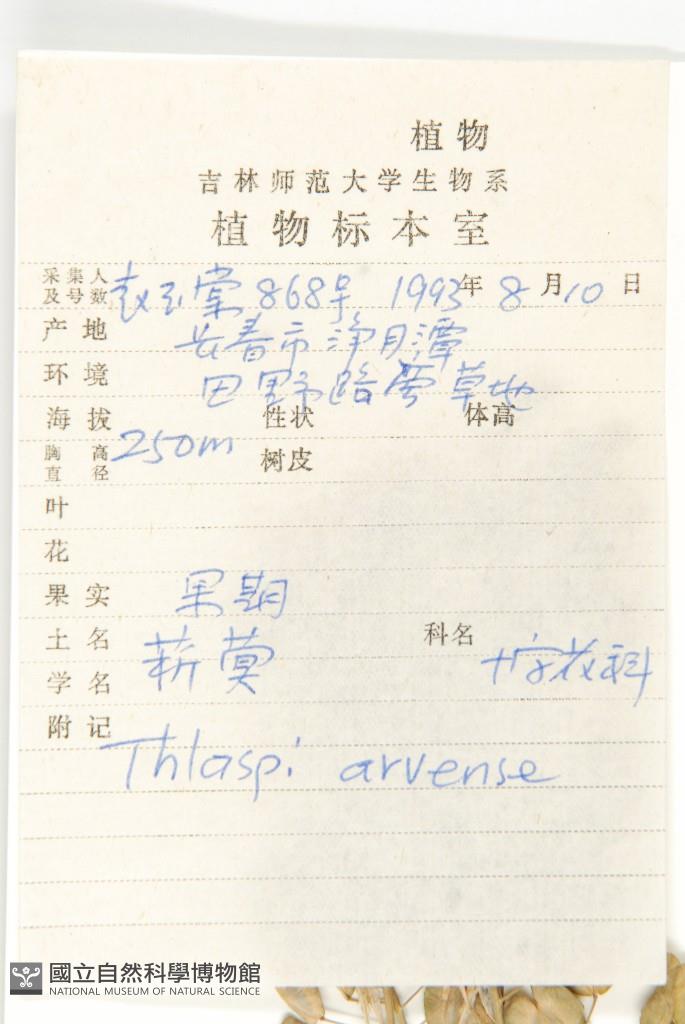 植物
吉林师范大学生物系
植物标本室
采集人及号数 袁玉棠 868号 1993年8月10日
产地 长春市净月潭
环境 田野路旁草地
海拔 250m 性状 体高
胸高直径 树皮
叶
花
果实 果期
土名 菥蓂 科名 十字花科
学名 Thlaspi arvense
附记
國立自然科學博物館
NATIONAL MUSEUM OF NATURAL SCIENCE